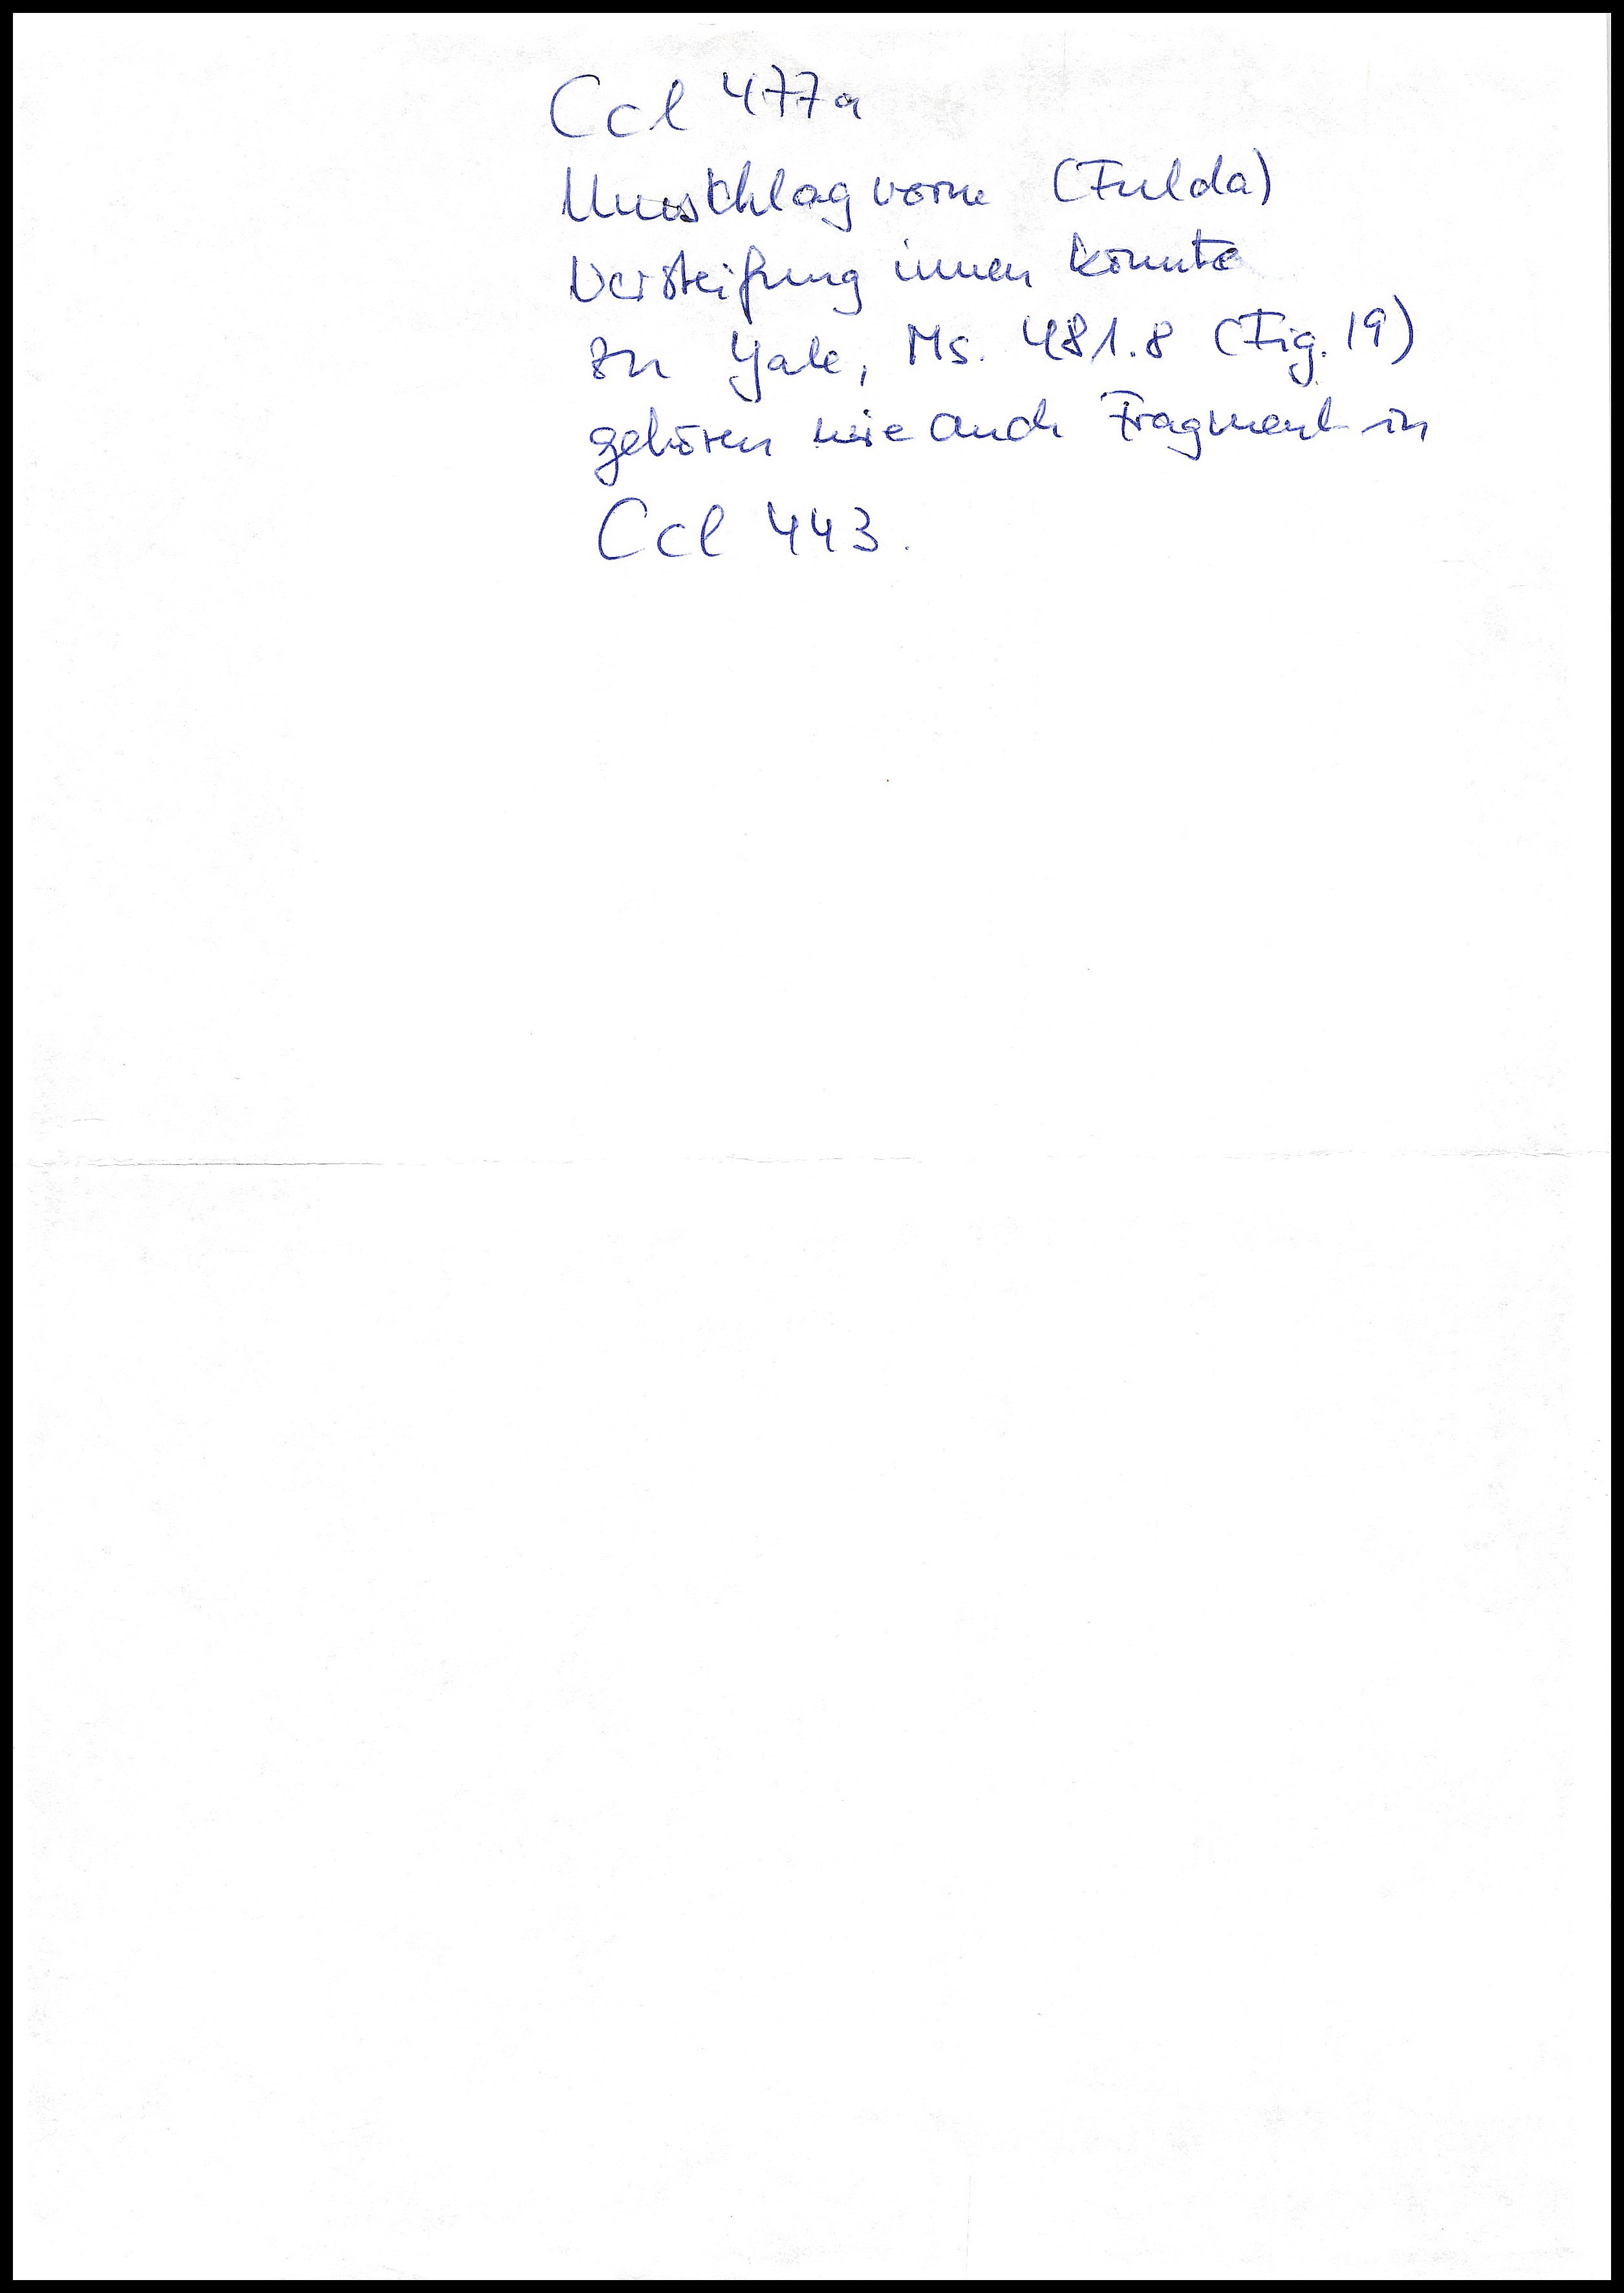 Ccl 477a
Umschlag vorne (Fulda)
Versteifung innen könnte
zu Yale, Ms. 481.8 (Fig. 19)
gehören wie auch Fragment in
Ccl 443.